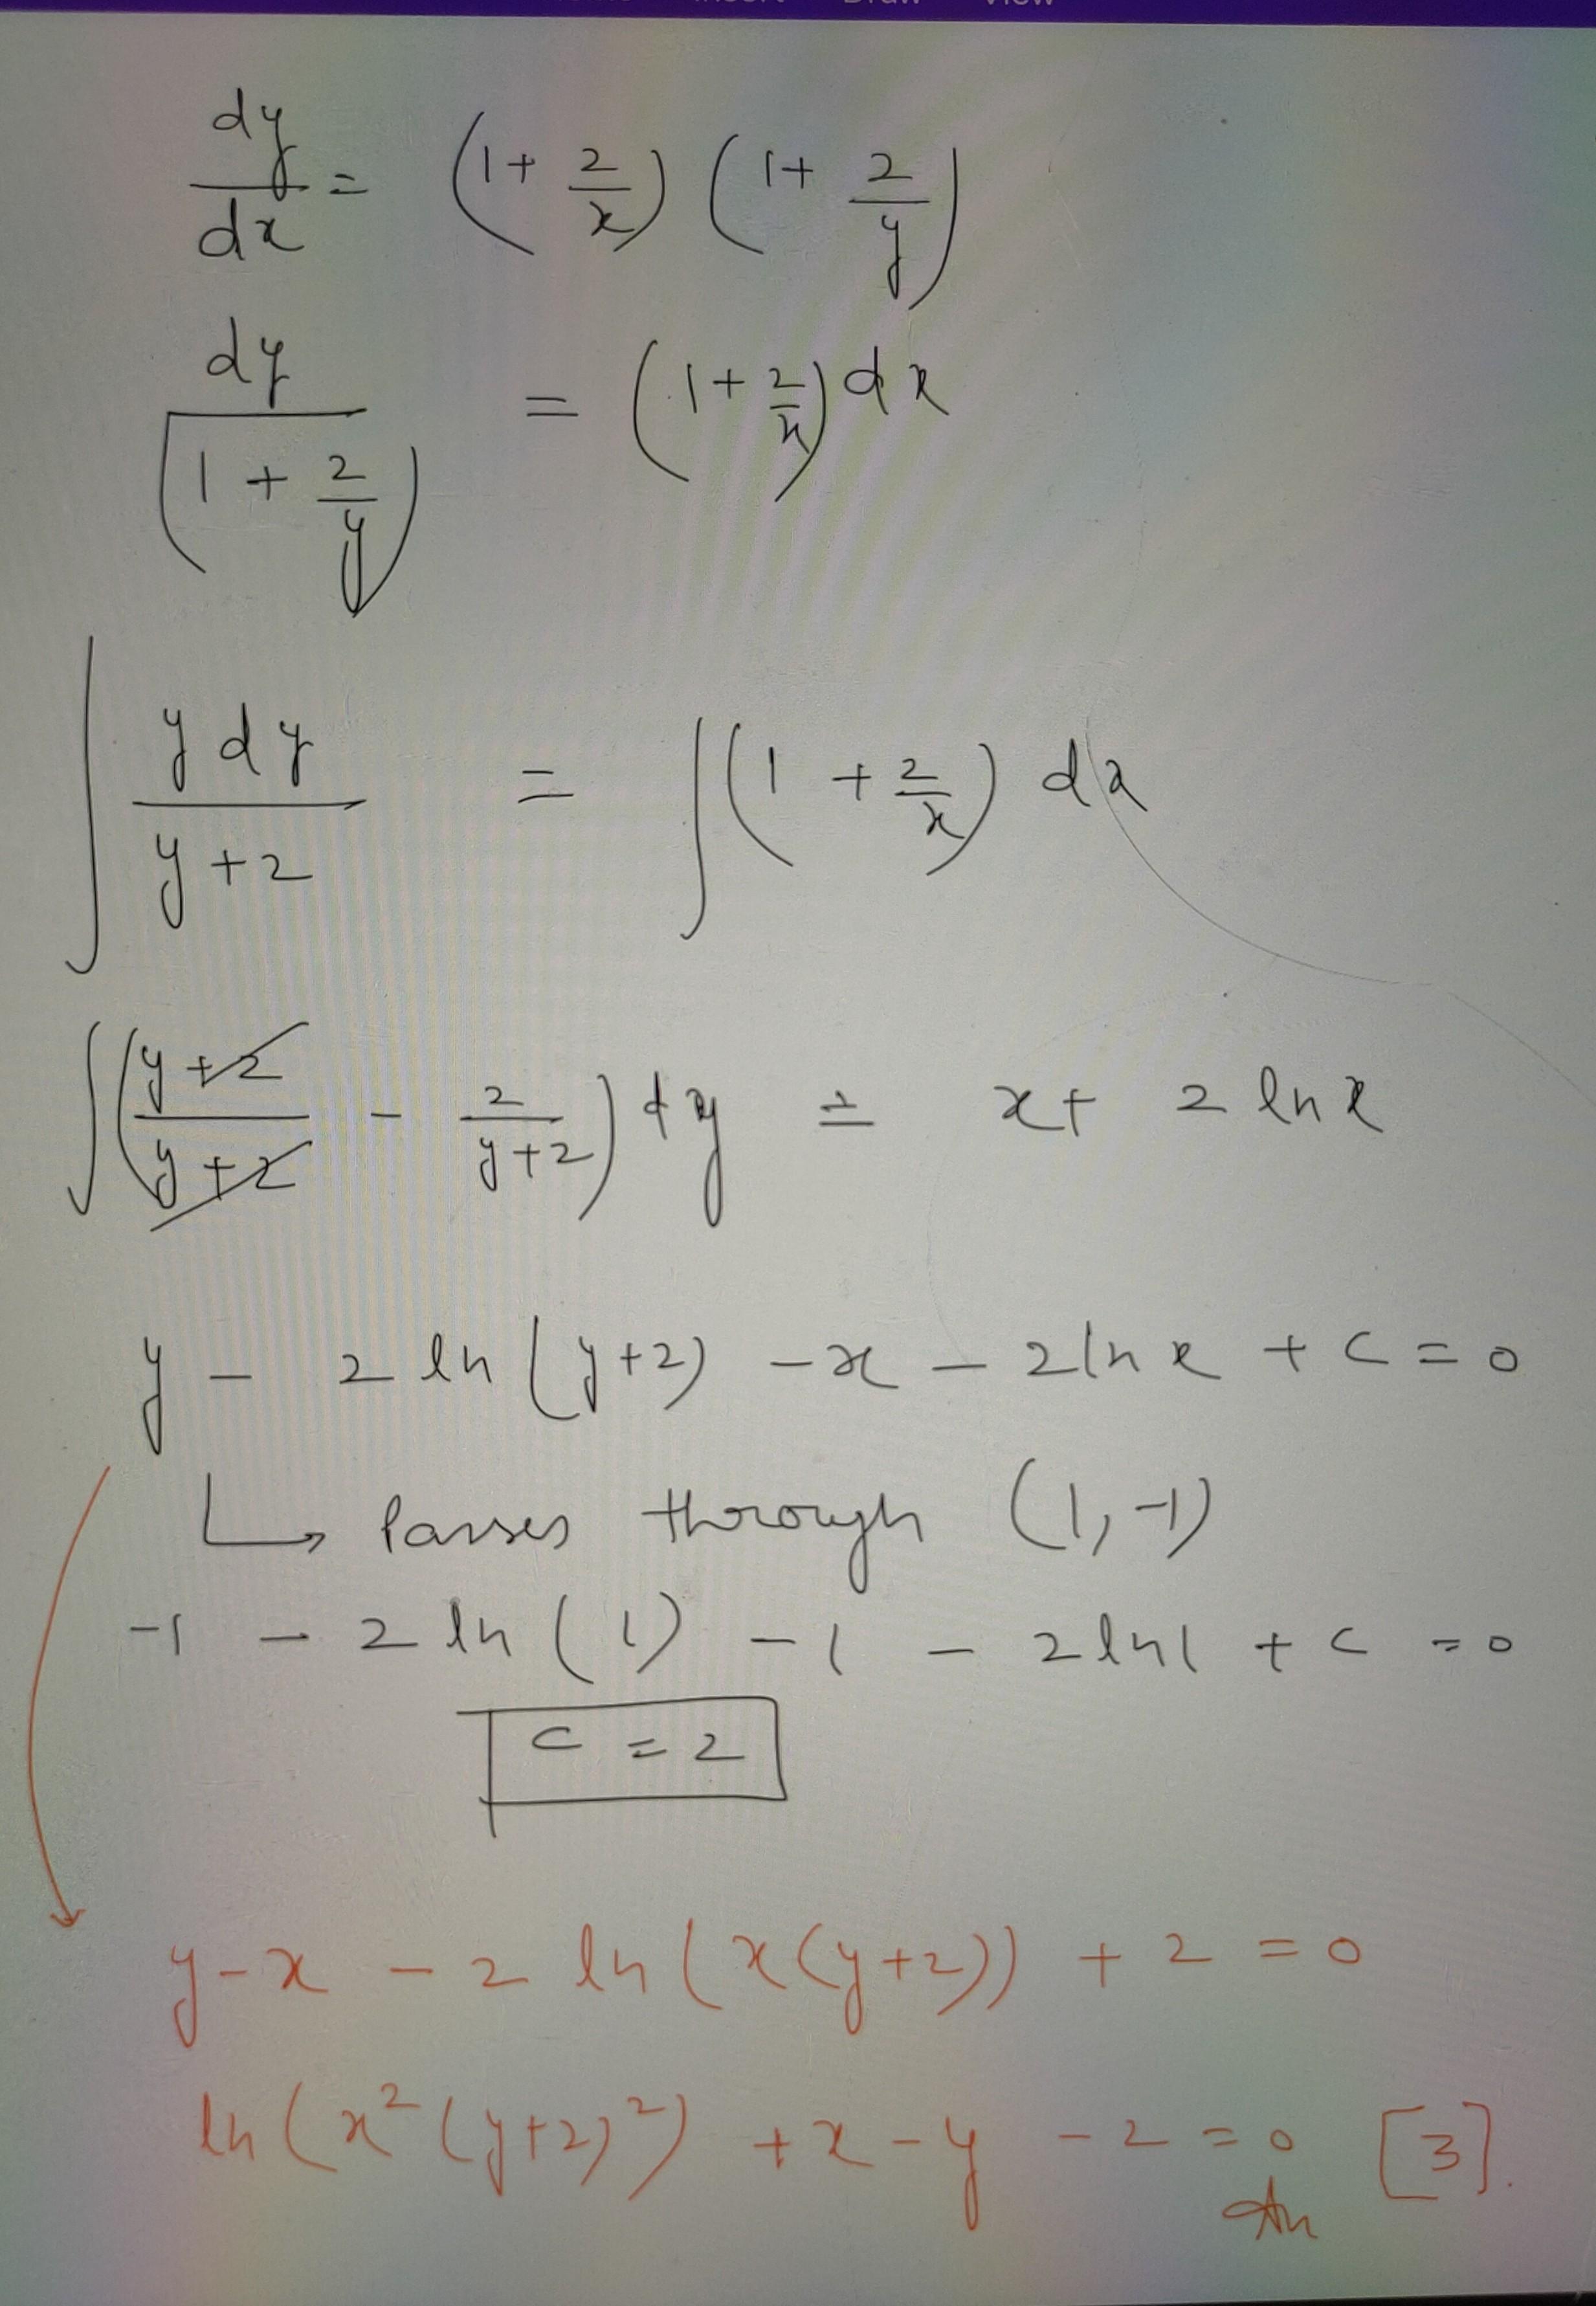 dy/dx = (1 + 2/x) (1 + 2/y)
dy/(1 + 2/y) = (1 + 2/x) dx
∫ y dy/(y+2) = ∫ (1 + 2/x) dx
∫ ((y+2)/(y+2) - 2/(y+2)) dy = x + 2 ln x
y - 2 ln (y+2) - x - 2 ln x + C = 0
↳ Passes through (1, -1)
-1 - 2 ln (1) - 1 - 2 ln 1 + C = 0
C = 2
y - x - 2 ln (x(y+2)) + 2 = 0
ln (x² (y+2)²) + x - y - 2 = 0 [3].